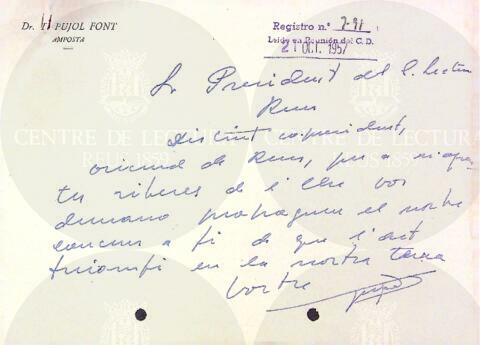 Dr. H. PUJOL FONT
AMPOSTA
Registro n.º 2-91
Leído en Reunión del C. D.
21 OCT. 1957
Sr President del C. Lectura
Reus
Distint co-president,
oriund de Reus, per a
riberes de l'Ebre vos
demano propagueu el nostre
concurs a fi de que l'art
triomfi en la nostra terra
Vostre
CENTRE DE LECTURA
REUS 1859